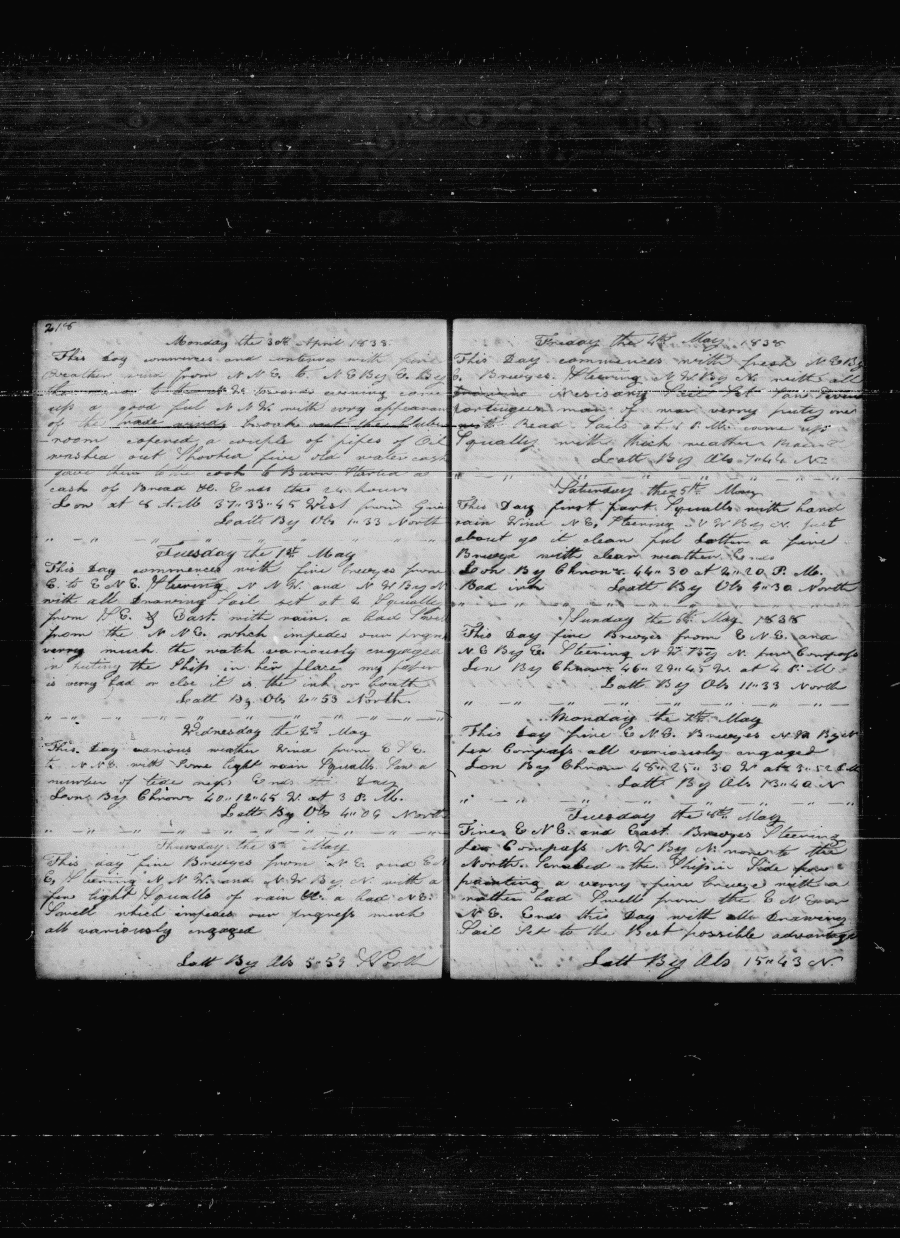 218
Monday the 30th April 1838
This Day commences and continues with fine
weather wind from N N E to N E By E By
evening came
up a good ful N N W with evry appearance
of the trade winds broake out the Blubber
room copened a couple of pipes of Oil
washed out Shooked five old water cask
gave them to the cook to Burn Started a
cask of Bread &c Ends this 24 hours
Lon at 8 A.M 37"33"45 West from Gr
Latt By Obs 1"33 North
Tuesday the 1st May
This Day commences with fine breezes from
E. to E N E Steering N N W. and N W By N
with all Drawing Sail set at 2 Squalls
from S E. & East. with rain. a bad Swell
from the N N E. which impedes our progress
verry much the watch variously engaged
in puting the Ship in her place my paper
is verry bad or else it is the ink or bouth
Latt By Obs 2"53 North.
Wednesday the 2d May
This Day various weather Wind from E & E.
to N N E with Some light rain Squalls Saw a
number of tide rips Ends this Day
Lon By Chron 40"12"45 W. at 3 P. M.
Latt By Obs 4"04 North
Thursday the 3d May
This day fine Breezes from N E and E N
E, Steering N N W. and N W By N. with a
few light Squalls of rain &c. a bad N E.
Swell which impedes our progress much
all variously engaged
Latt By Obs 5"59 North
Friday the 4th May 1838
This Day commences with fresh N E By
E. Breezes. Steering N W By N. with all
Nesisary Sail Set Saw
Portugeus man of war verry pretty one
with Read Sails at 4 P. M. come up
Squally with thick weather
Latt By Obs 7"44 N
Saturday the 5th May
This Day first part Squalls with hard
rain Wind N E, Steering N W By N. just
about 90 it clean ful batten a fine
Breeze with clear weather Ends
Lon By Chron. 44"30 at 2"20 P. M.
Bad ink Latt By Obs 9"30 North
Sunday the 6th May 1838
This Day fine Breezes from E N E. and
N E By E Steering N W By N. per Compass
Lon By Chron 46"29"45 W. at 4 P. M
Latt By Obs 11"33 North
Monday the 7th May
This Day fine E N E. Breezes N W By N
per Compass all variously engaged
Lon By Chron 48"25"30 W at 3"52 P M
Latt By Obs 13"40 N
Tuesday the 8th May
Fine E N E. and East. Breezes Steering
per Compass N W By N. now to the
North. Scrubed the Ships Side for
painting a verry fine breeze with a
rather bad Swell from the E N E or
N E. Ends this Day with all Drawing
Sail Set to the Best possible advantage
Latt By Obs 15"43 N